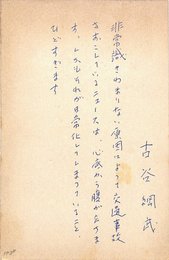 古谷綱武
非常識きわまりない原因によって交通事故
をおこしているニュースは、心底から腹がたちま
す。しかもそれが日常化してしまっていること、
ひどすぎます